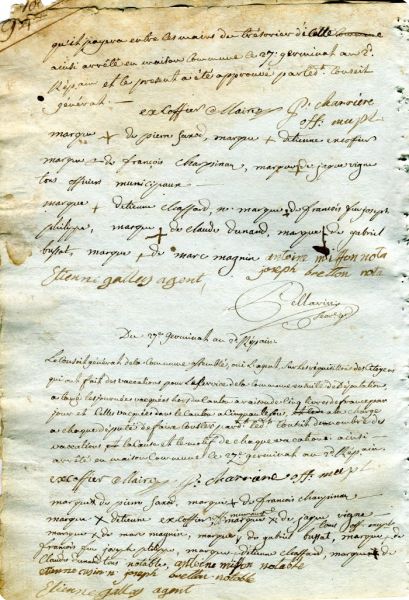 qu'il payera entre les mains du trésorier de cette commune
ainsi arrêté en maison commune le 27e germinal an 2e
et le présent a été approuvé par le dt conseil
général. —
excoffier Maire P. charriere
off. mupl
marque + de pierre favre, marque + detienne excoffier
marque + de françois charpinaz, marque de jaque vigne
tous officiers municipaux
marque + detienne chaffard, marque + de françois joseph
philippe, marque + de claude dunand, marque + de gabriel
bussat, marque + de marc magnin antoine miffon nota
Etienne gallay agent, joseph bretton nota
Pellarin
Secre
Du 27e germinal an 2e
Le Conseil général de la Commune assemblé, oui l'agent, sur les réquisitions des Citoyens
qui ont fait des vacations pour le service de la commune en suite de députation,
a taxé les journées vaquées hors du Canton à raison de cinq livres de france par
jour et celles vaquées dans le canton a cinquante sous, à la charge
a chaque députés de faire conster au dt conseil du nombre des
vacations, la cause et le motif de chaque vacations ainsi
arrêté en maison Commune le 27e germinal an 2e
excoffier Maire P. charriere off. mupl
marque + de pierre favre, marque + de françois charpinaz
marque + detienne excoffier marque + de jaque vigne
marque + de marc magnin, marque de gabriel bussat, marque de
françois joseph philippe, marque detienne chaffard, marque de
Claude dunand tous notable, antoine miffon notable
joseph bretton notable
Etienne gallay agent